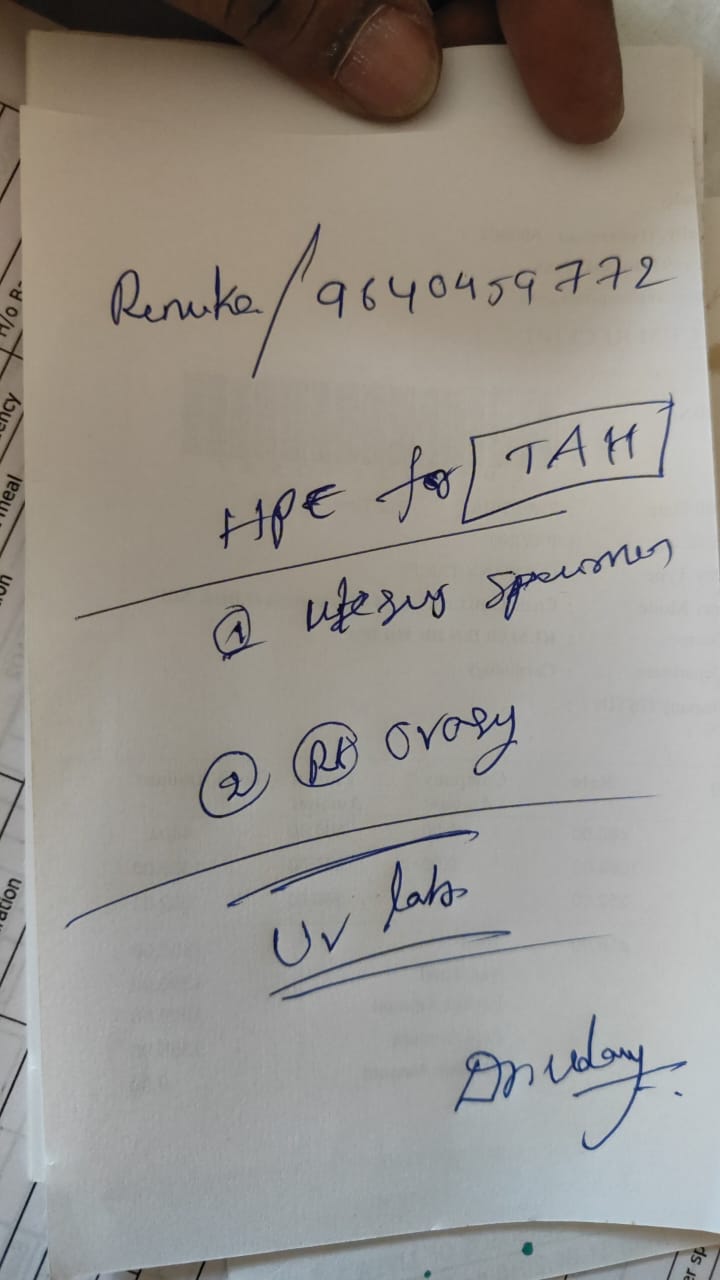 Renuka / 9640459772
HPE for TAH
① uterus specimen
② Rt ovary
UV labs
Dr Uday
H/o
ency
meal
ration